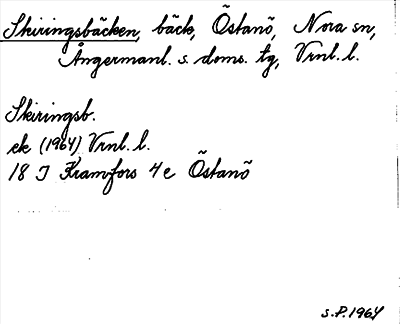 Skiringsbäcken, bäck, Östanö, Nora sn,
Ångermanl. s. doms. tg, Vrnl. l.
Skiringsb.
ek (1964) Vrnl. l.
18 I Kramfors 4e Östanö
S.P. 1964